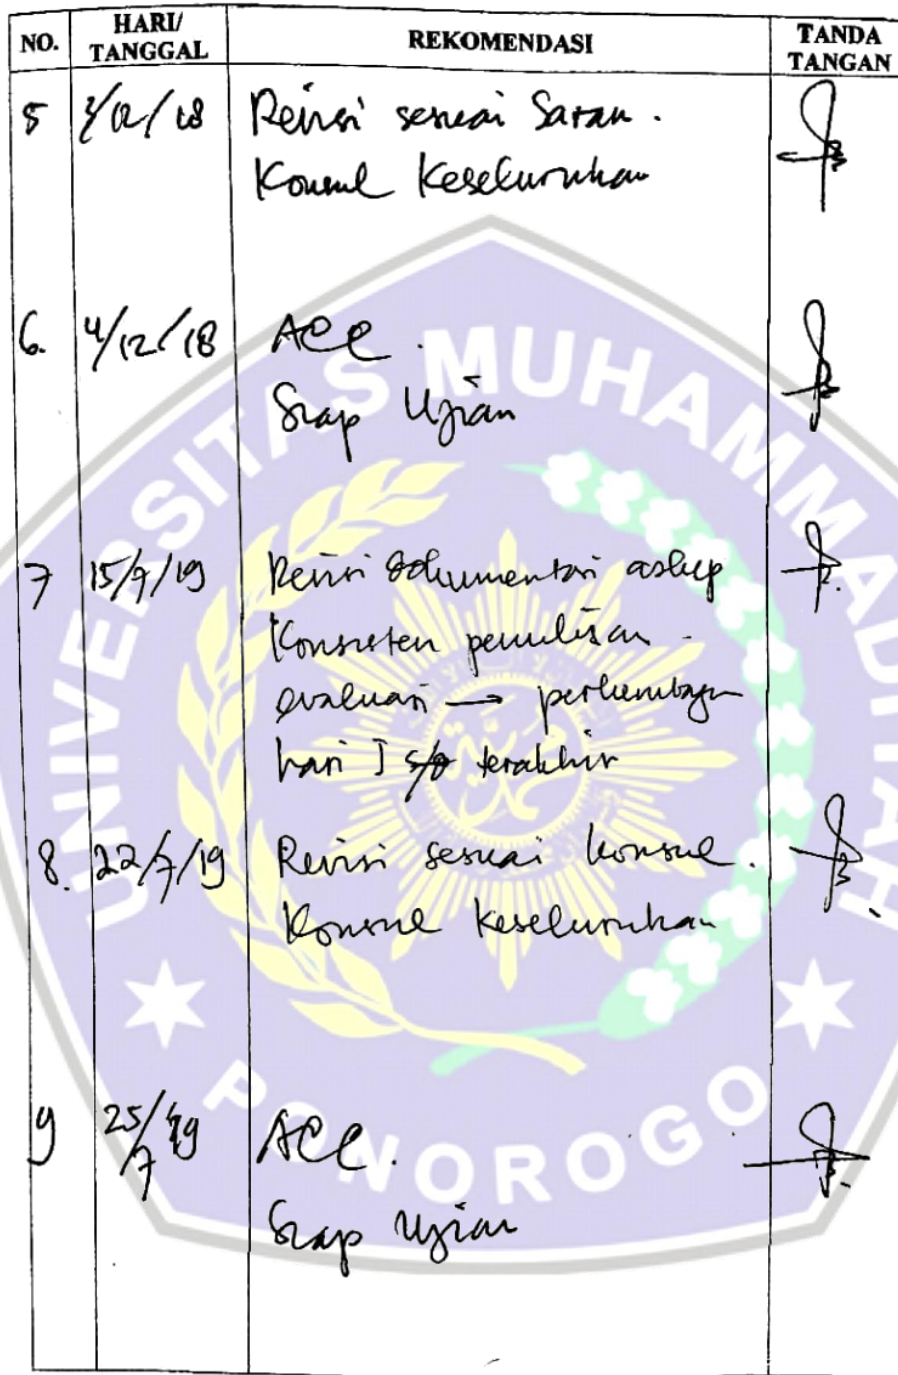 NO. HARI/ TANGGAL REKOMENDASI TANDA TANGAN
5 3/12/18 Revisi sesuai Saran.
Konsul Keseluruhan
6. 4/12/18 ACC.
Siap Ujian
7 15/7/19 Revisi dokumentasi askep
Konsisten penulisan -
evaluasi → perkembangan
hari I s/d terakhir
8. 22/7/19 Revisi sesuai konsul.
Konsul Keseluruhan
9 25/7/19 ACC.
Siap Ujian
UNIVERSITAS MUHAMMADIYAH
PONOROGO